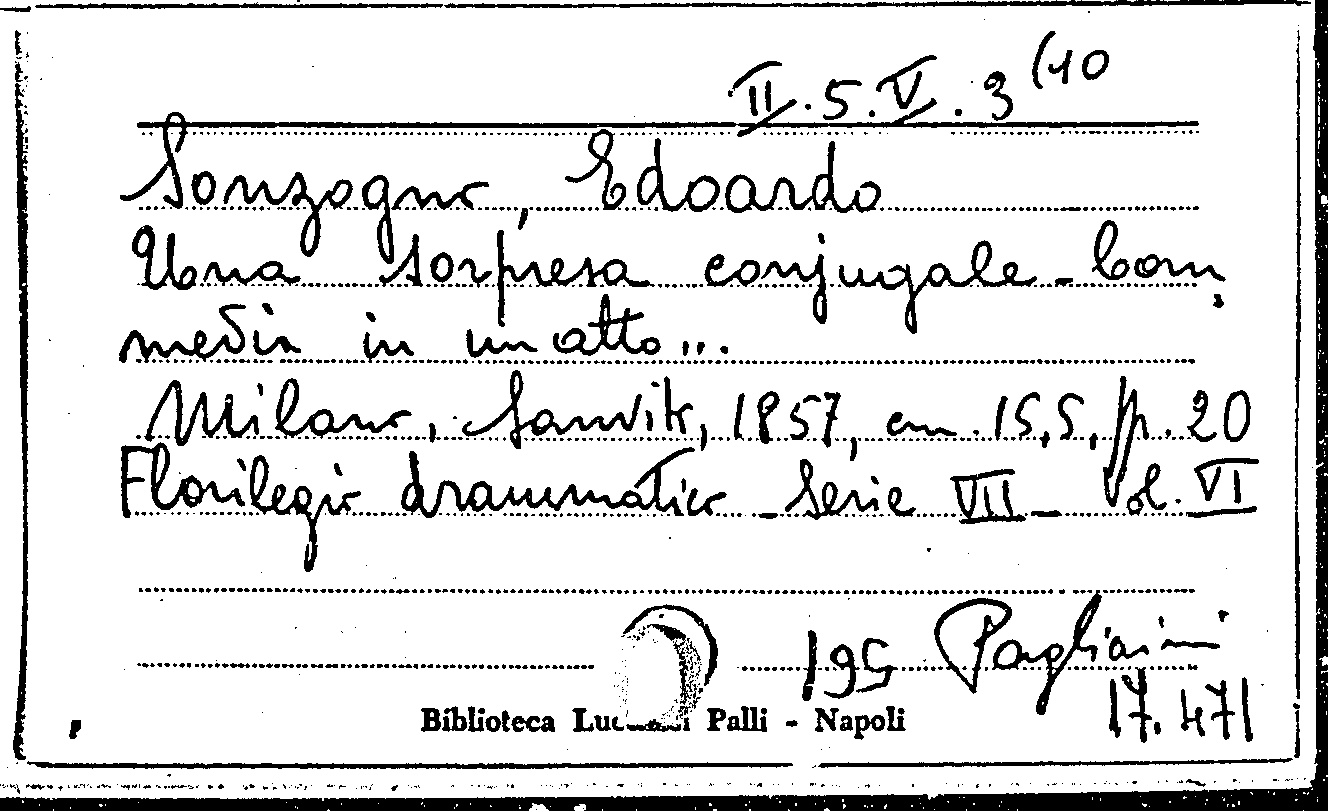 II.5.V.3(10
Sonzogno, Edoardo
Una sorpresa conjugale - Com
media in un atto...
Milano, Sanvito, 1857, cm. 15,5, pp. 20
Florilegio drammatico - Serie VII - Vol. VI
195 Pagliaini
17.471
Biblioteca Palli - Napoli